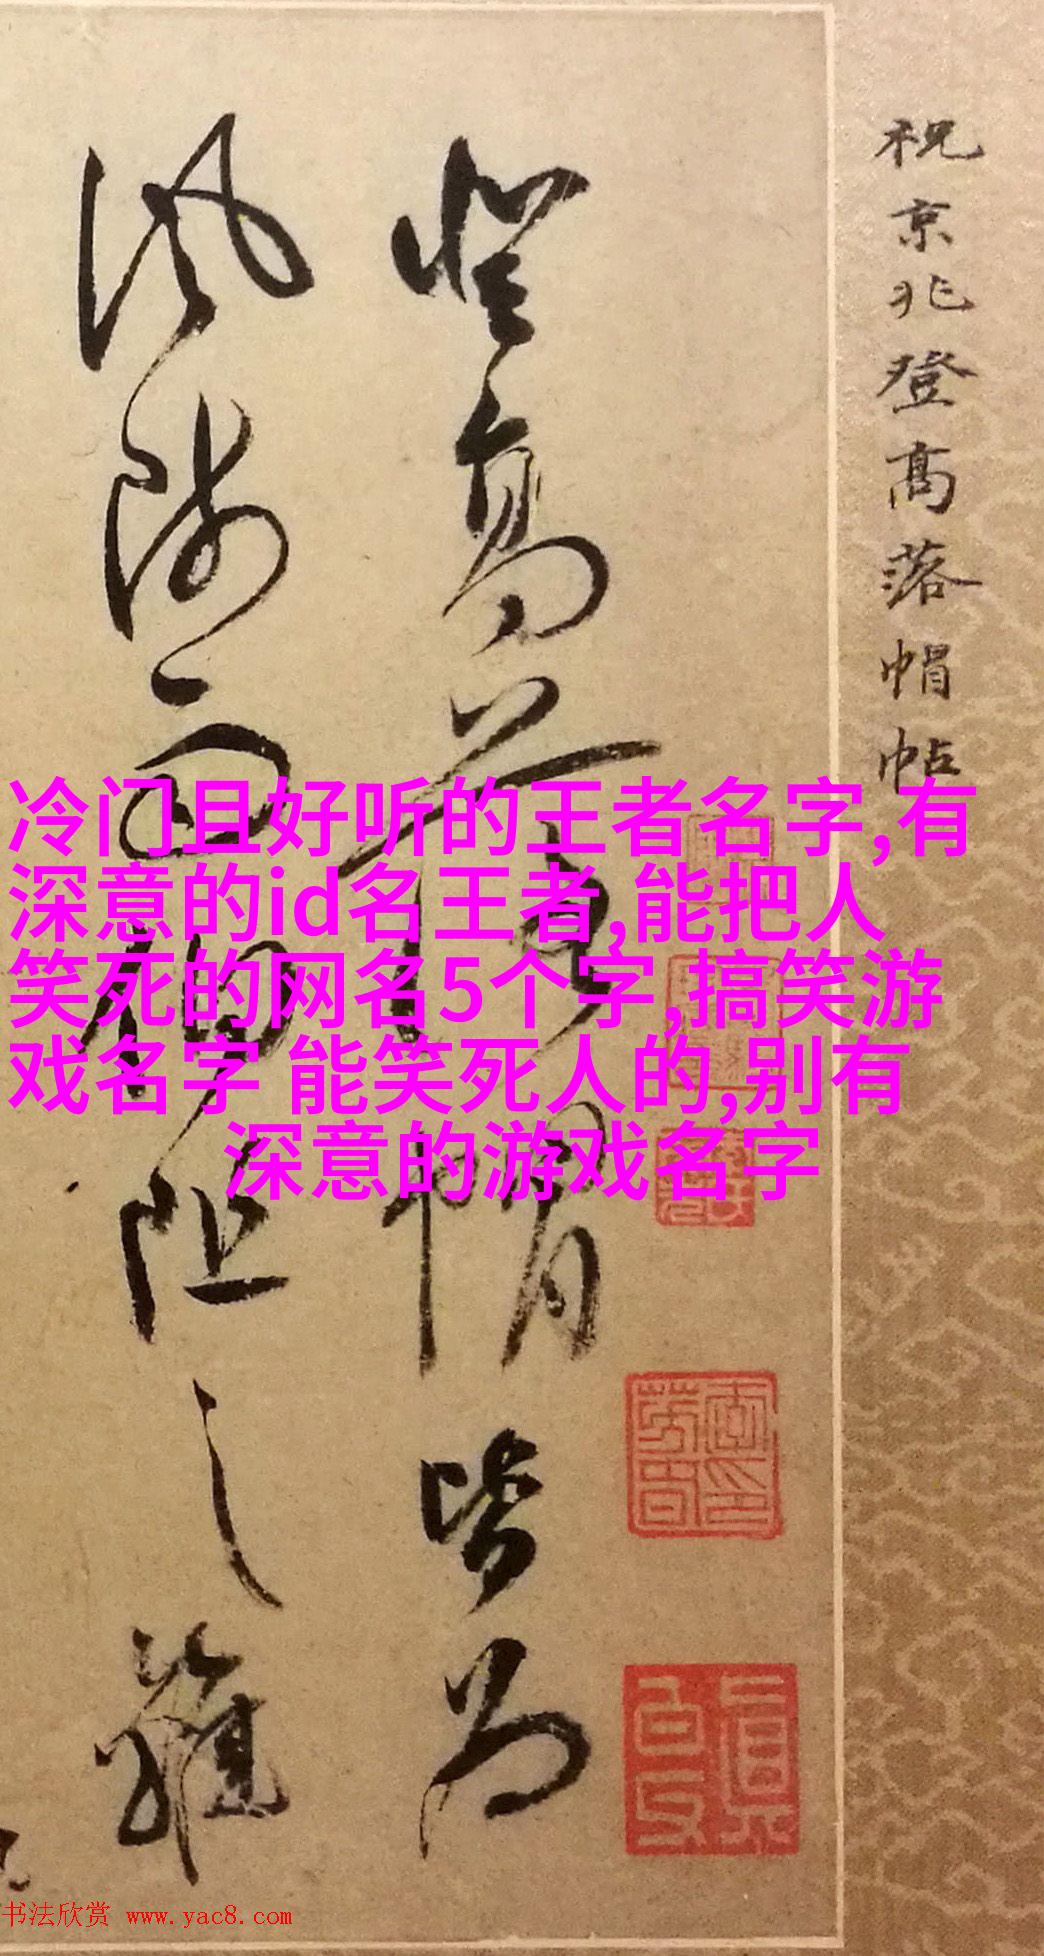 祝京兆登高落帽帖
登高落帽皆為
風師雨伯阻之雖
冷门且好听的王者名字,有
深意的id名王者,能把人
笑死的网名5个字,搞笑游
戏名字 能笑死人的,别有
深意的游戏名字
书法欣赏 www.yac8.com